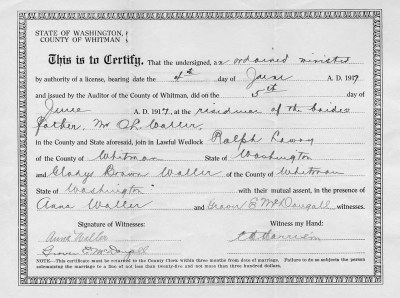 STATE OF WASHINGTON,
COUNTY OF WHITMAN
This is to Certify, That the undersigned, an ordained minister
by authority of a license, bearing date the 4th day of June A. D. 1917
and issued by the Auditor of the County of Whitman, did on the 5th day of
June A. D. 1917, at the residence of the brides
father, Mr O. L. Waller,
in the County and State aforesaid, join in Lawful Wedlock Ralph
of the County of Whitman State of Washington
and Gladys Brown Waller of the County of Whitman
State of Washington with their mutual assent, in the presence of
Anna Waller and Grover C McDougall witnesses.
Signature of Witnesses: Witness my Hand:
Anna Waller
Grover C McDougall
NOTE—This certificate must be returned to the County Clerk within three months from date of marriage. Failure to do so subjects the person
solemnizing the marriage to a fine of not less than twenty-five and not more than three hundred dollars.